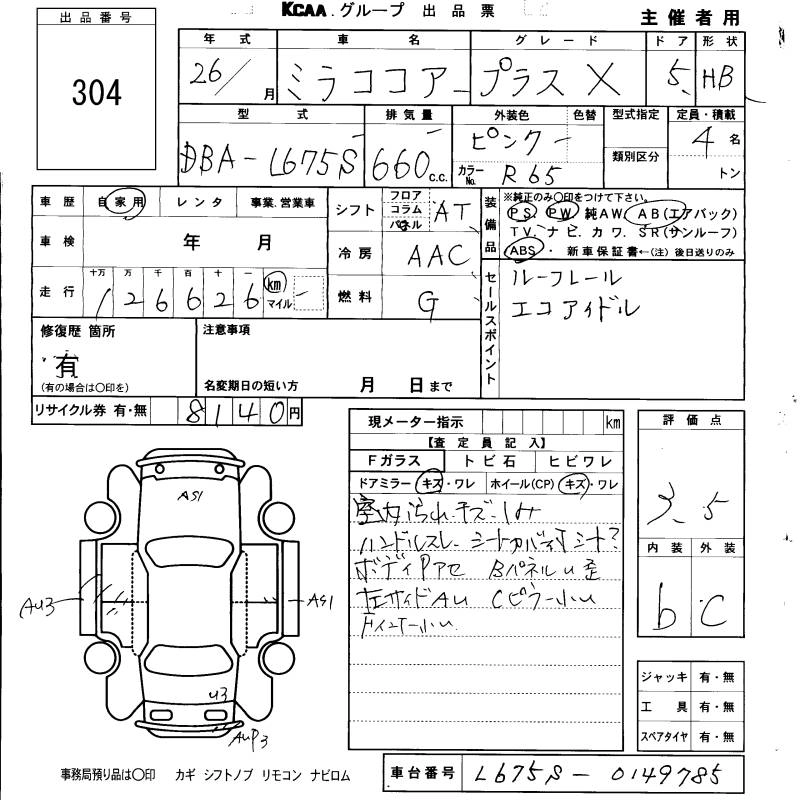 KCAA.グループ 出品票
主催者用
出品番号
304
年式 車名 グレード ドア 形状
26/ 月 ミラココアー プラス X 5 HB
型式 排気量 外装色 色替 型式指定 定員・積載
DBA-L675S 660 c.c. ピンク 類別区分 4 名
カラーNo. R65 トン
車歴 自家用 レンタ 事業.営業車
車検 年 月
走行 十万 万 千 百 十 一 km マイル
1 2 6 6 2 6
シフト フロア コラム パネル AT
冷房 AAC
燃料 G
装備品
※純正のみ〇印をつけて下さい。
PS PW 純AW AB(エアバック)
TV. ナビ. カワ. SR(サンルーフ)
ABS ・ 新車保証書←(注)後日送りのみ
セールスポイント
ルーフレール
エコアイドル
修復歴 箇所
有
(有の場合は〇印を)
注意事項
名変期日の短い方 月 日まで
リサイクル券 有・無 8140円
現メーター指示 km
【査定員記入】
Fガラス トビ石 ヒビワレ
ドアミラー キズ・ワレ ホイール(CP) キズ・ワレ
室内汚れ.キズ.シミ
ハンドルスレ シートカバー付 シート?
ボディPアセ Bパネルu歪
左サイドAu Cピラー小u
小u
評価点
3.5
内装 外装
b C
ジャッキ 有・無
工具 有・無
スペアタイヤ 有・無
AS1
AU3
AS1
U3
AUP3
事務局預り品は〇印 カギ シフトノブ リモコン ナビロム
車台番号 L675S-0149785